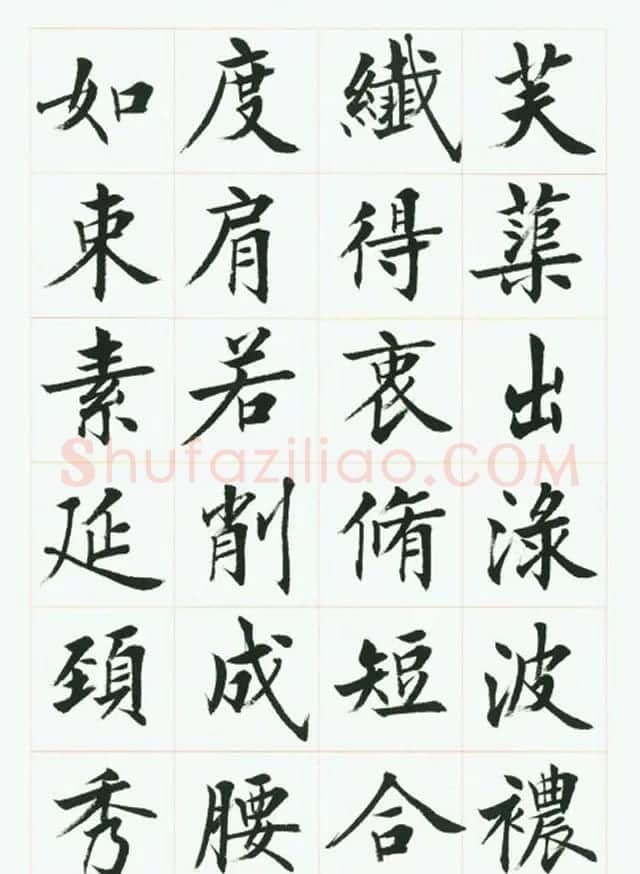 芙蕖出渌波襛
纖得衷脩短合
度肩若削成腰
如束素延頚秀
Shufaziliao.COM